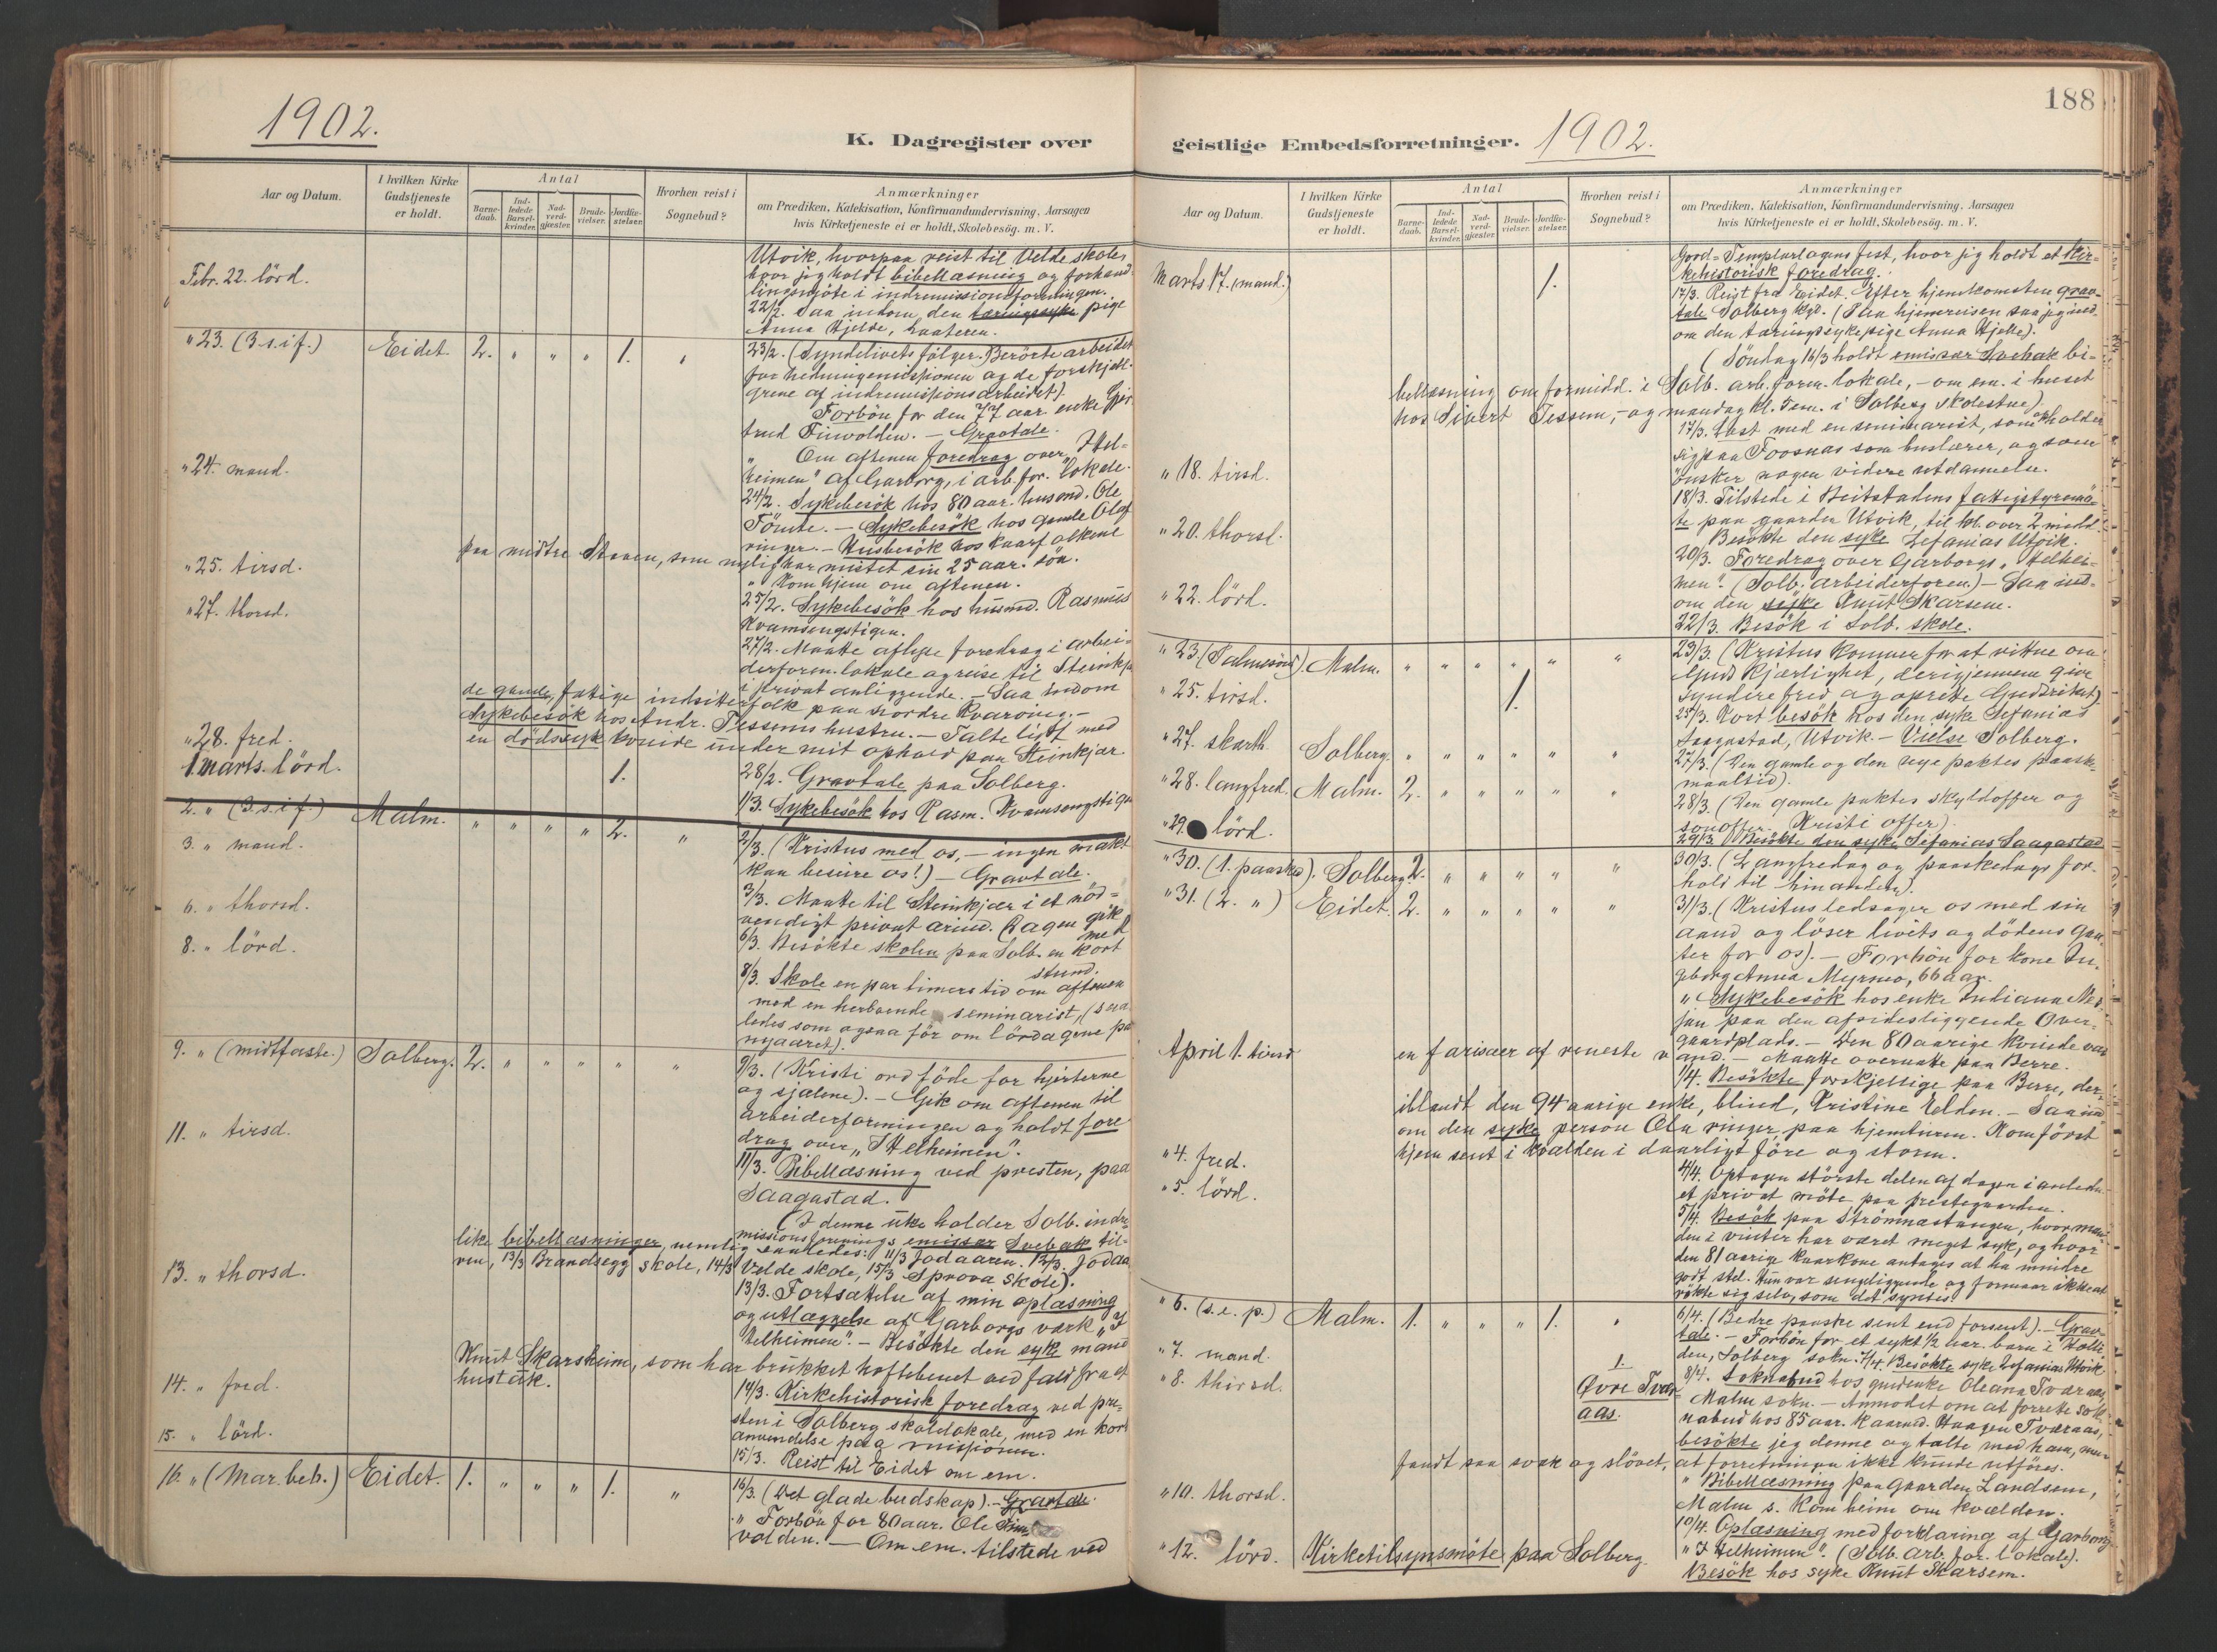 1902.
K. Dagregister over
Aar og Datum.
I hvilken Kirke Gudstjeneste er holdt.
Antal
Barnedaab.
Indledede Barselkvinder.
Nadverdgjæster.
Brudevielser.
Jordfæstelser.
Hvorhen reist i Sognebud?
Anmærkninger
om Prædiken, Katekisation, Konfirmandundervisning, Aarsagen
hvis Kirketjeneste ei er holdt, Skolebesøg. m. V.
Utvik, hvorpaa reist til Velde skole,
hvor jeg holdt bibellæsning og forhand-
lingsmöte i indremissionsforeningen.
Febr. 22. lörd.
22/2. Saa indom den tæringssyke pige
Anna Hjelde,
" 23. (3 s. i f.) Eidet. 2. " " " 1. "
23/2. (Syndelivets fölger. Berörte arbeidet
for hedningemissionen og de forskjell.
grene af indremissionsarbeidet).
Forbön for den 77 aar. enke Gjer
trud Finvolden. — Gravtale.
" Om aftenen foredrag over "I Hel-
heimen" af Garborg, i arb. for. lokale.
" 24. mand.
24/2. Sykebesök hos 80 aar. husmd. Ole
Tömte. — Sykebesök hos gamle Olaf
ringer. — Husbesök hos kaarfolkene
paa midtre Staven, som nylig har mistet sin 25 aar. sön.
" Kom hjem om aftenen.
" 25. tirsd.
25/2. Sykebesök hos husmd. Rasmus
Kvamsengstigen.
" 27. thorsd.
27/2. Maatte aflyse foredrag i arbei-
derforen. lokale og reise til Steinkjær
i privat anliggende. — Saa indom
de gamle, fattige indsitterfolk paa nordre Kvarving. —
Sykebesök hos Andr. Tessems hustru. — Talte litt med
en dödssyk kvinde under mit ophold paa Steinkjær.
" 28. fred.
28/2. Gravtale paa Solberg.
1 marts. lörd. 1.
1/3. Sykebesök hos Rasm. Kvamsengstigen
2. " (3. s. i f.) Malm. " " " " 2. "
2/3. (Kristus med os, — ingen makt
kan beseire os!) — Gravtale.
3. " mand.
3/3. Maatte til Steinkjær i et nöd-
vendigt privat ærind. Dagen gik med
6. " thorsd.
6/3. Besökte skolen paa Solb. en kort
stund.
8. " lörd.
8/3. Skole en par timers tid om aftenen
med en herboende seminarist, (saa
ledes som ogsaa för om lördagene paa
nyaaret).
9. " (midtfaste.) Solberg. 2. " " " " "
9/3. (Kristi ord föde for hjerterne
og sjælene). — Gik om aftenen til
arbeiderforeningen og holdt fore
drag over "I Helheimen".
11. " tirsd.
11/3. Bibellæsning ved presten, paa
Saagastad.
(I denne uke holder Solb. indre
missionsforenings emissær Svebak til-
like bibellæsninger, nemlig saaledes: 11/3 Jodaaren. 12/3 Jodaa
ren, 13/3 Brandsegg skole, 14/3 Velde skole, 15/3 Sprova skole).
13. " thorsd.
13/3. Fortsættelse af min oplæsning
og utlæggelse af Garborgs værk "I
Helheimen". — Besökte den syke mand
Knut Skarsheim, som har brukket hoftebenet ved fald fra et
hustak.
14. " fred.
14/3. Kirkehistorisk foredrag ved pre-
sten i Solberg skolelokale, med en kort
anvendelse paa missionen.
15. " lörd.
15/3. Reist til Eidet om em.
16. " (Mar. beb.) Eidet. 1. " " " 1. "
16/3. (Det glade budskap). — Gravtale.
" Forbön for 80 aar. Ole Fin-
volden. — Om em. tilstede ved
188
geistlige Embedsforretninger. 1902.
Aar og Datum.
I hvilken Kirke Gudstjeneste er holdt.
Antal
Barnedaab.
Indledede Barselkvinder.
Nadverdgjæster.
Brudevielser.
Jordfæstelser.
Hvorhen reist i Sognebud?
Anmærkninger
om Prædiken, Katekisation, Konfirmandundervisning, Aarsagen
hvis Kirketjeneste ei er holdt, Skolebesøg. m. V.
Good-Templarlagens fest, hvor jeg holdt et kir-
kehistorisk foredrag.
Marts 17. (mand.) 1.
17/3. Reist fra Eidet. Efter hjemkomsten grav-
tale Solberg kgd. (Paa hjemreisen saa jeg ind-
om den tæringssyke pige Anna Hjelde).
(Söndag 16/3 holdt emissær Svebak bi-
bellæsning om formidd. i Solb. arb. foren. lokale, — om em. i huset
hos Sivert Tessem, — og mandag kl. 5 em. i Solberg skolestue).
17/3. Læst med en seminarist, som opholder
sig paa Foosnæs som huslærer, og som
önsker nogen videre utdannelse.
" 18. tirsd.
18/3. Tilstede i Beitstadens fattigstyremö-
te paa gaarden Utvik, til kl. over 2 midd.
Besökte den syke Zefanias Utvik.
" 20. thorsd.
20/3. Foredrag over Garborgs "I Helhei-
men". (Solb. arbeiderforen.) — Saa ind-
om den syke Knut Skarsem.
" 22. lörd.
22/3. Besök i Solb. skole.
" 23. (Palmesönd.) Malm. " " " " " "
23/3. (Kristus kommer for at vittne om
Guds kjærlighet, derigjennem give
syndere fred og oprette Gudsriket).
" 25. tirsd. 1.
25/3. Kort besök hos den syke Sefanias
Saagastad, Utvik. — Vielse Solberg.
" 27. skærth. Solberg. " " " " " "
27/3. (Den gamle og den nye paktes paaske-
maaltid).
" 28. langfred. Malm. 2. " " " " "
28/3. (Den gamle paktes skyldoffer og
sonoffer. Kristi offer).
" 29. lörd.
29/3. Besökte den syke Sefanias Saagastad
" 30. (1. paasked). Solberg. 2. " " " " "
30/3. (Langfredag og paaskedags for-
hold til hinanden).
" 31. (2. ") Eidet. 2. " " " " "
31/3. (Kristus ledsager os med sin
aand og löser livets og dödens gaa-
ter for os). — Forbön for kone In-
geborg Anna Myrmo, 66 aar.
" Sykebesök hos enke Indiana
paa den afsidesliggende Over-
gaardplads. — Den 80 aarige kvinde var
en farisæer af reneste vand. — Maatte overnatte paa Berre.
April 1. tirsd
1/4. Besökte forskjellige paa Berre, der-
iblandt den 94 aarige enke, blind, Kristine Elden. — Saa ind
om den syke person Ola ringer, paa hjemturen. Kom först
hjem sent i kvælden i daarligt före og storm.
" 4. fred.
4/4. Optagen störste delen af dagen i anledn.
et privat möte paa prestegaarden.
" 5. lörd.
5/4. Besök paa Strömnæstangen, hvor man-
den i vinter har været meget syk, og hvor
den 81 aarige kaarkone antages at ha mindre
godt stel. Hun var sengeliggende og formaar ikke at
rökte sig selv, som det syntes.
" 6. (s. e. p.) Malm. 1. " " " 1. "
6/4. (Bedre paaske sent end forsent). — Grav-
tale. — Forbön for et sykt 1/2 aar. barn i
den, Solberg sokn.
" 7. mand. 1.
7/4. Besökte syke Zefanias Utvik
" 8. thirsd. Øvre Tvær-
aas.
8/4. Soknebud hos gmlenke Oleana Tværaas,
Malm sokn. — Anmodet om at forrette sok-
nebud hos 85 aar. kaarmd. Haagen Tværaas,
besökte jeg denne og talte med ham, men
fandt saa svak og slövet, at forretningen ikke kunde utföres.
" Bibellæsning paa gaarden Landsem,
Malm s. Kom heim om kvælden.
" 10. thorsd.
10/4. Oplæsning med forklaring af Garborg
"I Helheimen". (Solb. arb. for. lokale).
" 12. lörd. Kirketilsynsmöte paa Solberg.
Besök hos syke Knut Skarsem.